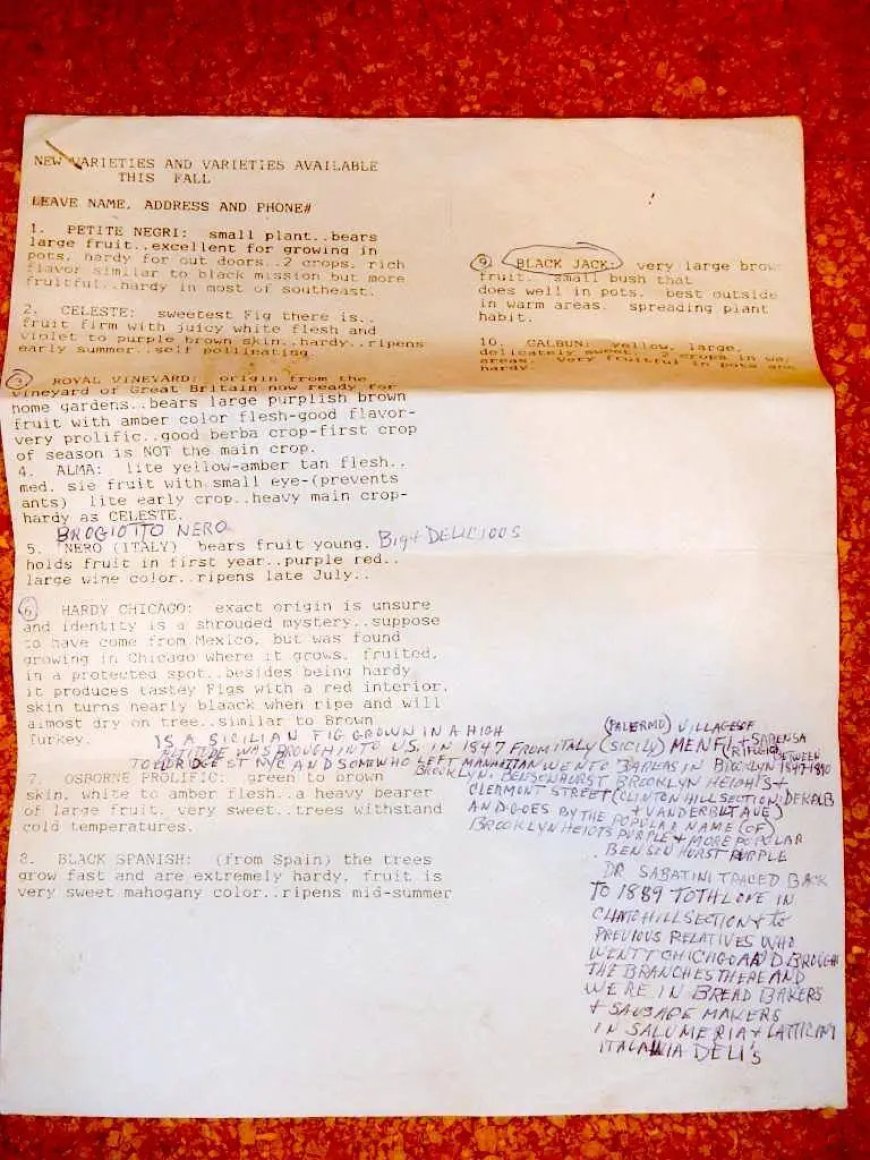 NEW VARIETIES AND VARIETIES AVAILABLE
THIS FALL
LEAVE NAME, ADDRESS AND PHONE#
1. PETITE NEGRI: small plant..bears
large fruit..excellent for growing in
pots, hardy for out doors..2 crops, rich
flavor similar to black mission but more
fruitful..hardy in most of southeast.
2. CELESTE: sweetest Fig there is..
fruit firm with juicy white flesh and
violet to purple brown skin..hardy..ripens
early summer..self pollinating
3 ROYAL VINEYARD: origin from the
vineyard of Great Britain now ready for
home gardens..bears large purplish brown
fruit with amber color flesh-good flavor-
very prolific..good berba crop-first crop
of season is NOT the main crop.
4. ALMA: lite yellow-amber tan flesh..
med. sie fruit with small eye-(prevents
ants) lite early crop..heavy main crop-
hardy as CELESTE.
BROGIOTTO NERO
5. NERO (ITALY) bears fruit young. Big + DELICIOUS
holds fruit in first year..purple red..
large wine color..ripens late July..
6 HARDY CHICAGO: exact origin is unsure
and identity is a shrouded mystery..suppose
to have come from Mexico, but was found
growing in Chicago where it grows, fruited,
in a protected spot..besides being hardy
it produces tastey Figs with a red interior,
skin turns nearly blaack when ripe and will
almost dry on tree..similar to Brown
Turkey.
IS A SICILIAN FIG GROWN IN A HIGH
ALTITUDE WAS BROUGH INTO U.S. IN 1847 FROM ITALY (SICILY) MENFI +
(PALERMO) VILLAGES OF
TO ELDRIDGE ST NYC AND SOM WHO LEFT MANHATTAN WENT TO BAKERS IN BROOKLYN 1847-1890
BETWEEN
BROOKLYN. BENSONHURST BROOKLYN HEIGHTS +
CLERMONT STREET (CLINTON HILL SECTION: DEKALB
+ VANDERBILT AVE)
AND GOES BY THE POPULAR NAME (OF)
BROOKLYN HEIGTS PURPLE + MORE POPULAR
BENSIN HURST PURPLE
DR SABATINI TRACED BACK
TO 1889 TO TH LOVE IN
SECTION + to
PREVIOUS RELATIVES WHO
WENT
THE BRANCHES THERE AND
WERE IN BREAD BAKERS
+ SAUSAGE MAKERS
IN SALUMERIA +
DELI'S
7. OSBORNE PROLIFIC: green to brown
skin, white to amber flesh..a heavy bearer
of large fruit, very sweet..trees withstand
cold temperatures.
8. BLACK SPANISH: (from Spain) the trees
grow fast and are extremely hardy, fruit is
very sweet mahogany color..ripens mid-summer
9 BLACK JACK: very large brow
fruit. small bush that
does well in pots. best outside
in warm areas. spreading plant
habit.
10. GALBUN: yellow, large,
delicately sweet. 2 crops in wa
areas. Very fruitful in pots and
hardy.